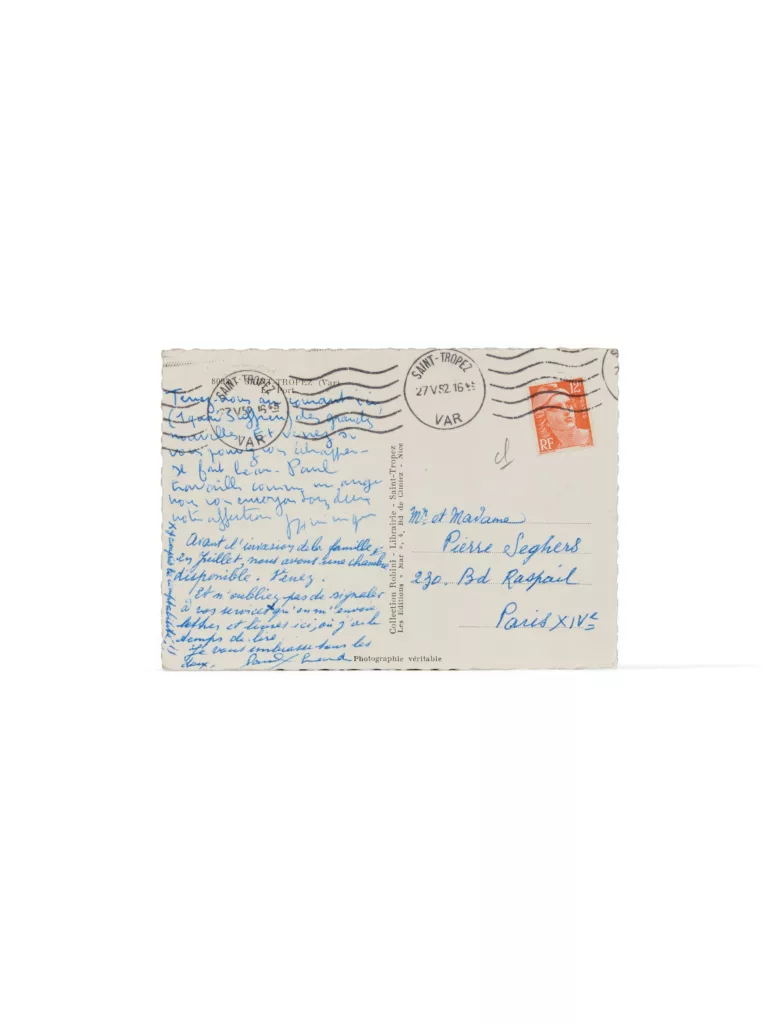 SAINT-TROPEZ (Var)
Le Port
SAINT-TROPEZ
VAR
SAINT-TROPEZ
27 V 52 16
VAR
12F
RF
Tenez-nous au courant ici
des grands
nouvelles. Et venez si
vous pouvez vous échapper
Il fait beau. Paul
travaille comme un ange
nous vous envoyons tous deux
notre affection
Avant l'invasion de la famille
en Juillet, nous avons une chambre
disponible. Venez.
Et n'oubliez pas de signaler
à vos services qu'on m'envoie
lettres et livres ici, où j'ai le
temps de lire.
Je vous embrasse tous les
deux. Paul Eluard
Collection Rohini - Librairie - Saint-Tropez
Les Editions « Mar », 4, Bd de Cimiez - Nice
Photographie véritable
Mr. et Madame
Pierre Seghers
230. Bd Raspail
Paris XIVe